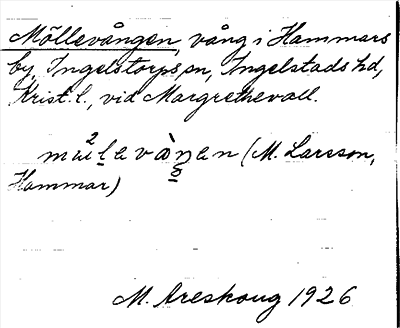 Möllevången, vång i Hammars
by, Ingelstorps sn, Ingelstads hd,
Krist. l., vid Margrethevall.
(M. Larsson,
Hammar)
M. Areskoug 1926